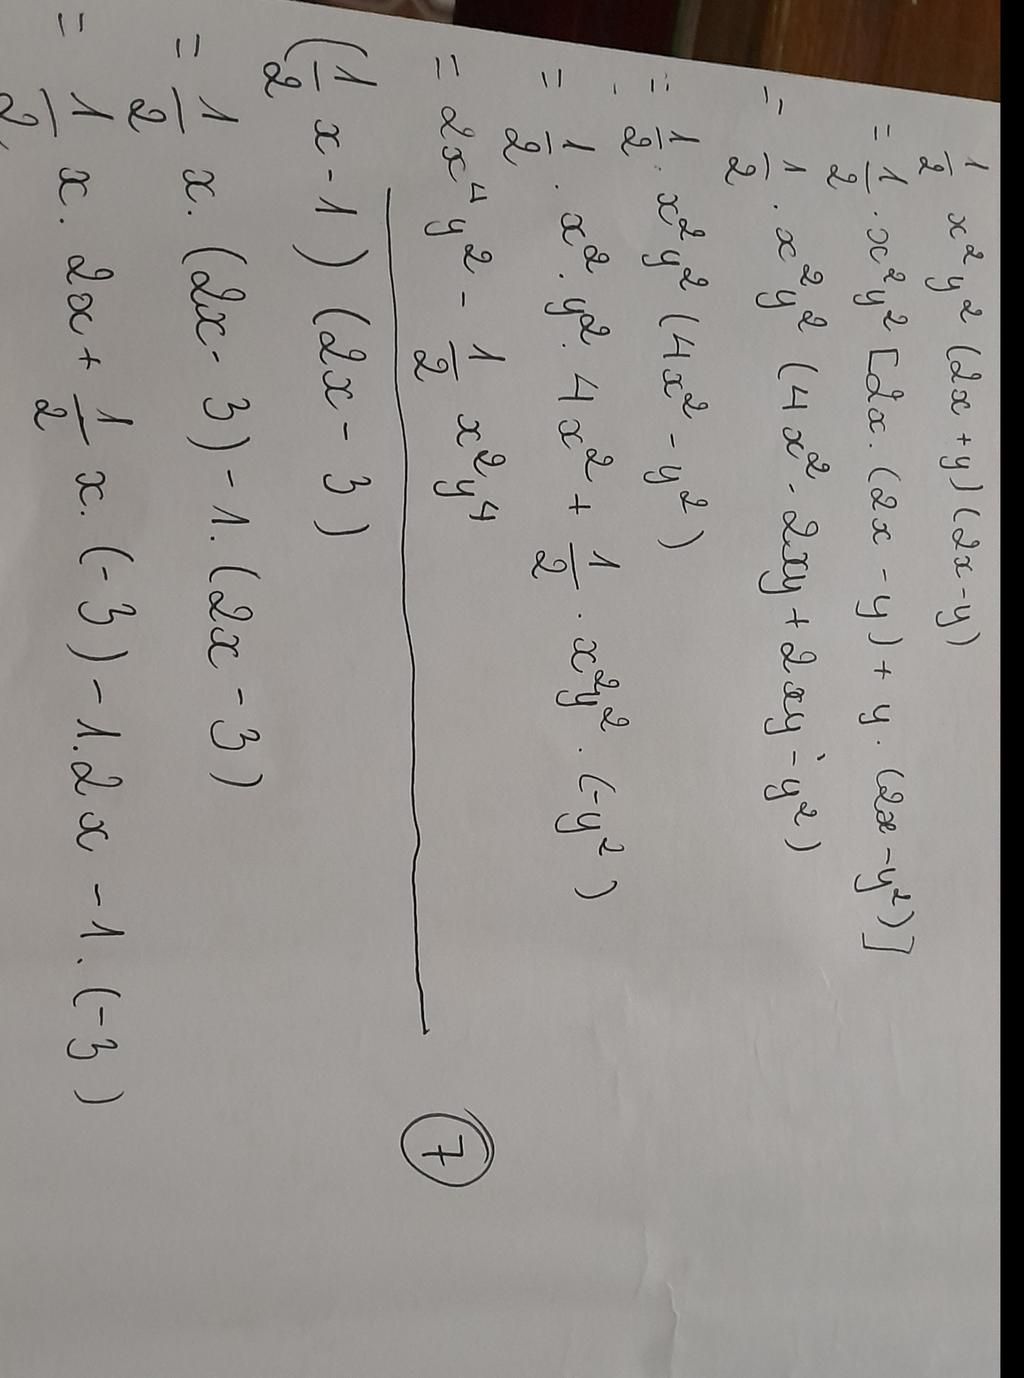 1/2 x²y² (2x + y) (2x - y)
= 1/2 . x²y² [2x. (2x - y) + y. (2x - y²)]
= 1/2 . x²y² (4x² - 2xy + 2xy - y²)
= 1/2 . x²y² (4x² - y²)
= 1/2 . x² . y² . 4x² + 1/2 . x²y² . (-y²)
= 2x⁴y² - 1/2 x²y⁴
7
(1/2 x - 1) (2x - 3)
= 1/2 x. (2x - 3) - 1. (2x - 3)
= 1/2 x. 2x + 1/2 x. (-3) - 1. 2x - 1. (-3)